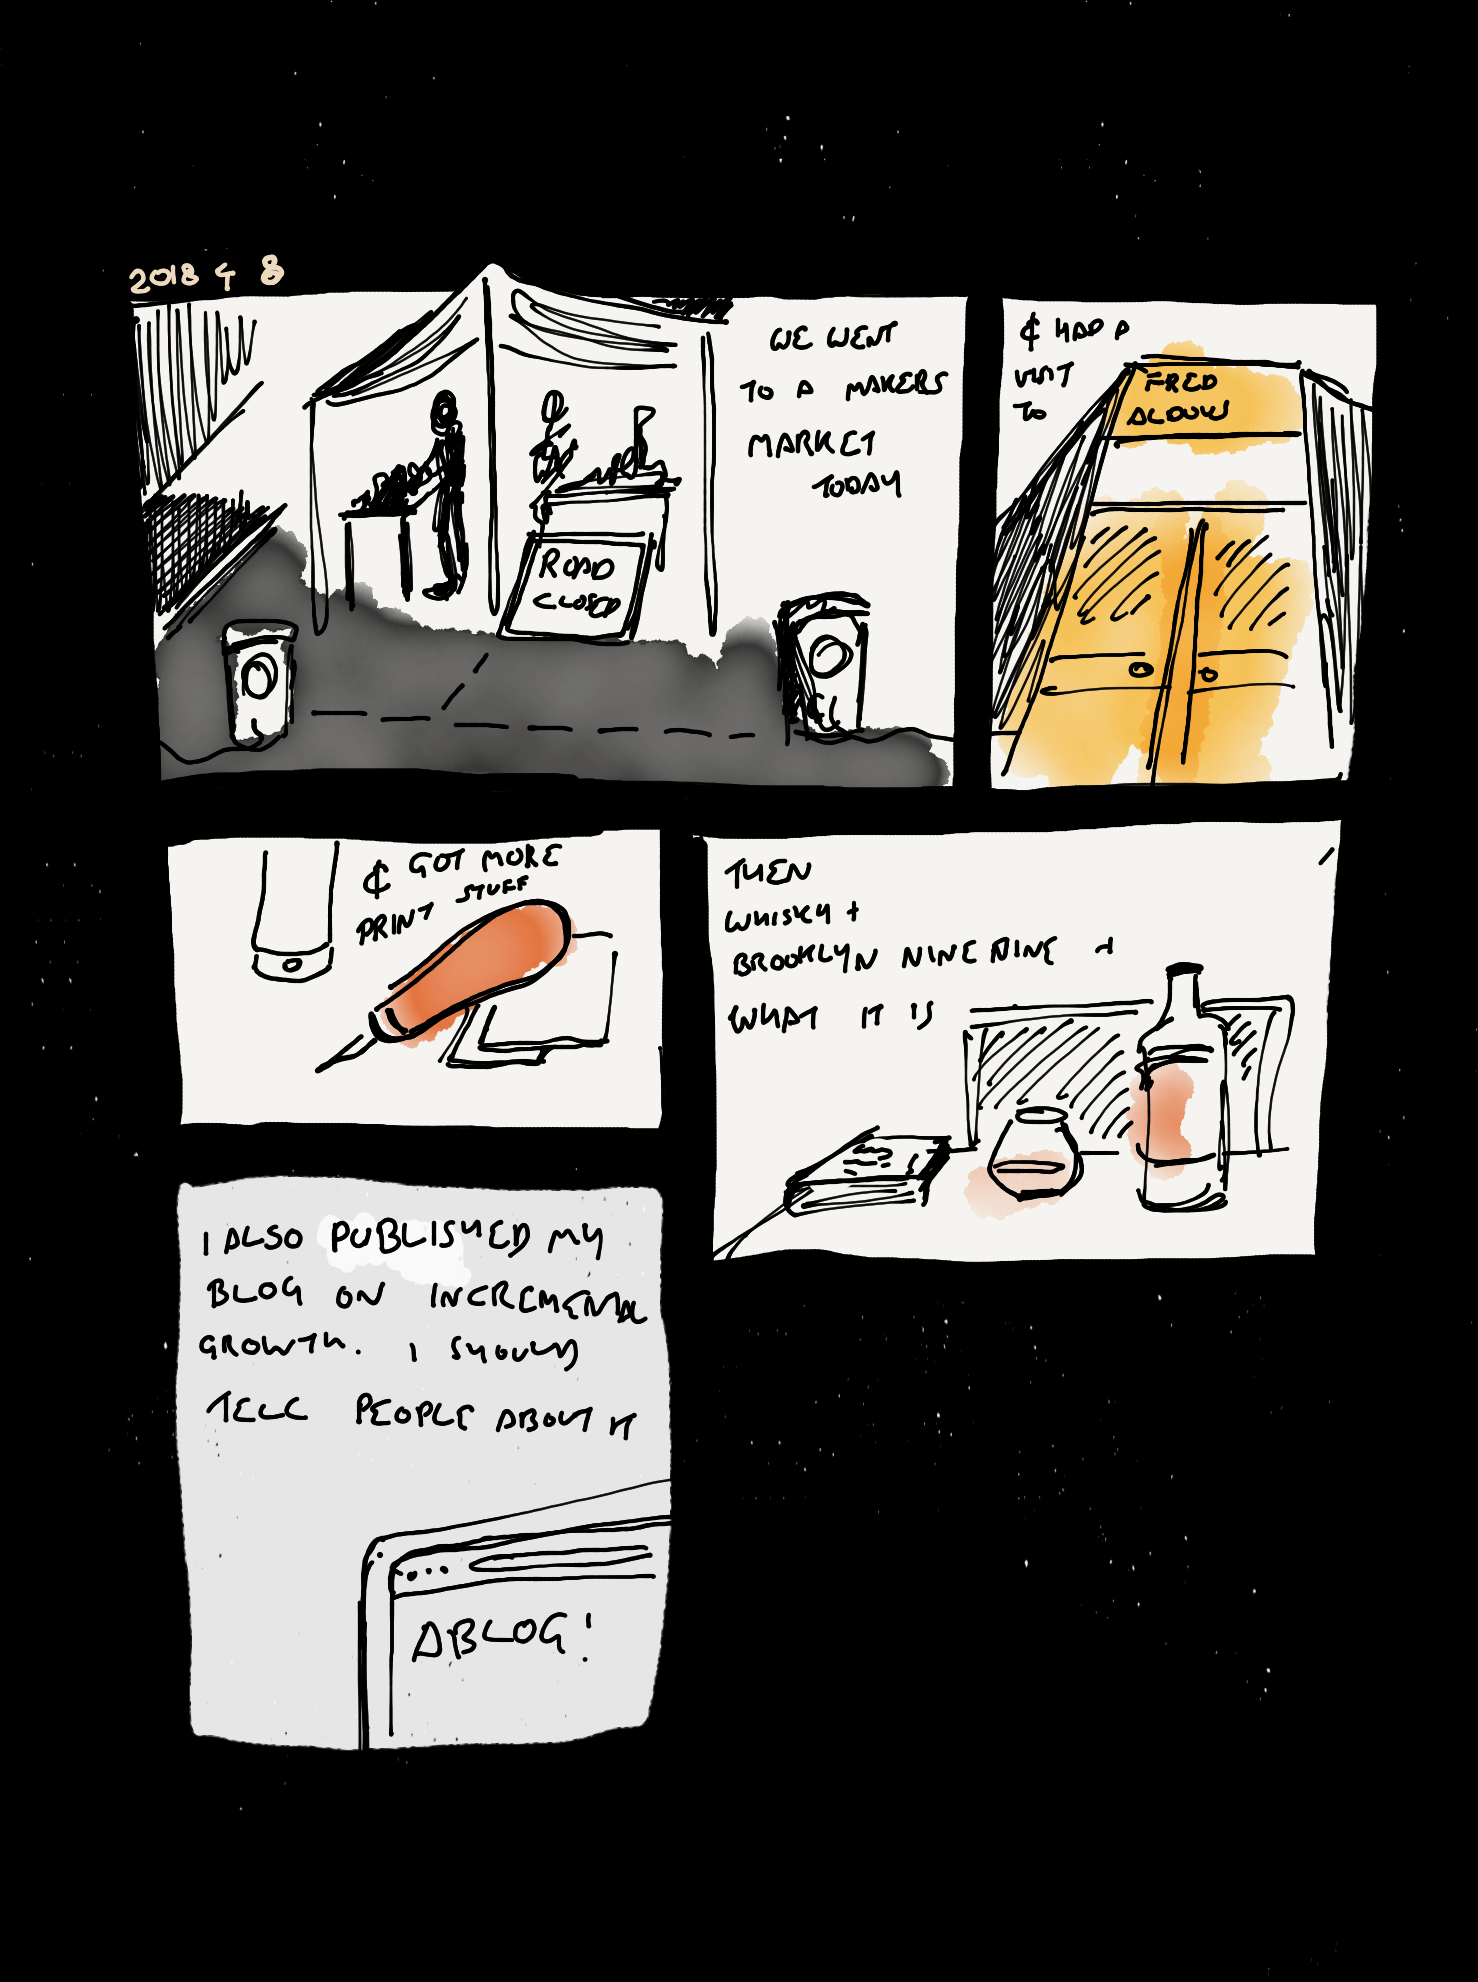 2018 4 8
WE WENT
TO A MAKERS
MARKET
TODAY
ROAD
CLOSED
& HAD A
VISIT
TO
FRED
ALDOUS
& GOT MORE
PRINT STUFF
THEN
WHISKY +
BROOKLYN NINE NINE +
WHAT IT IS
I ALSO PUBLISHED MY
BLOG ON INCREMENTAL
GROWTH. I SHOULD
TELL PEOPLE ABOUT IT
ABLOG!